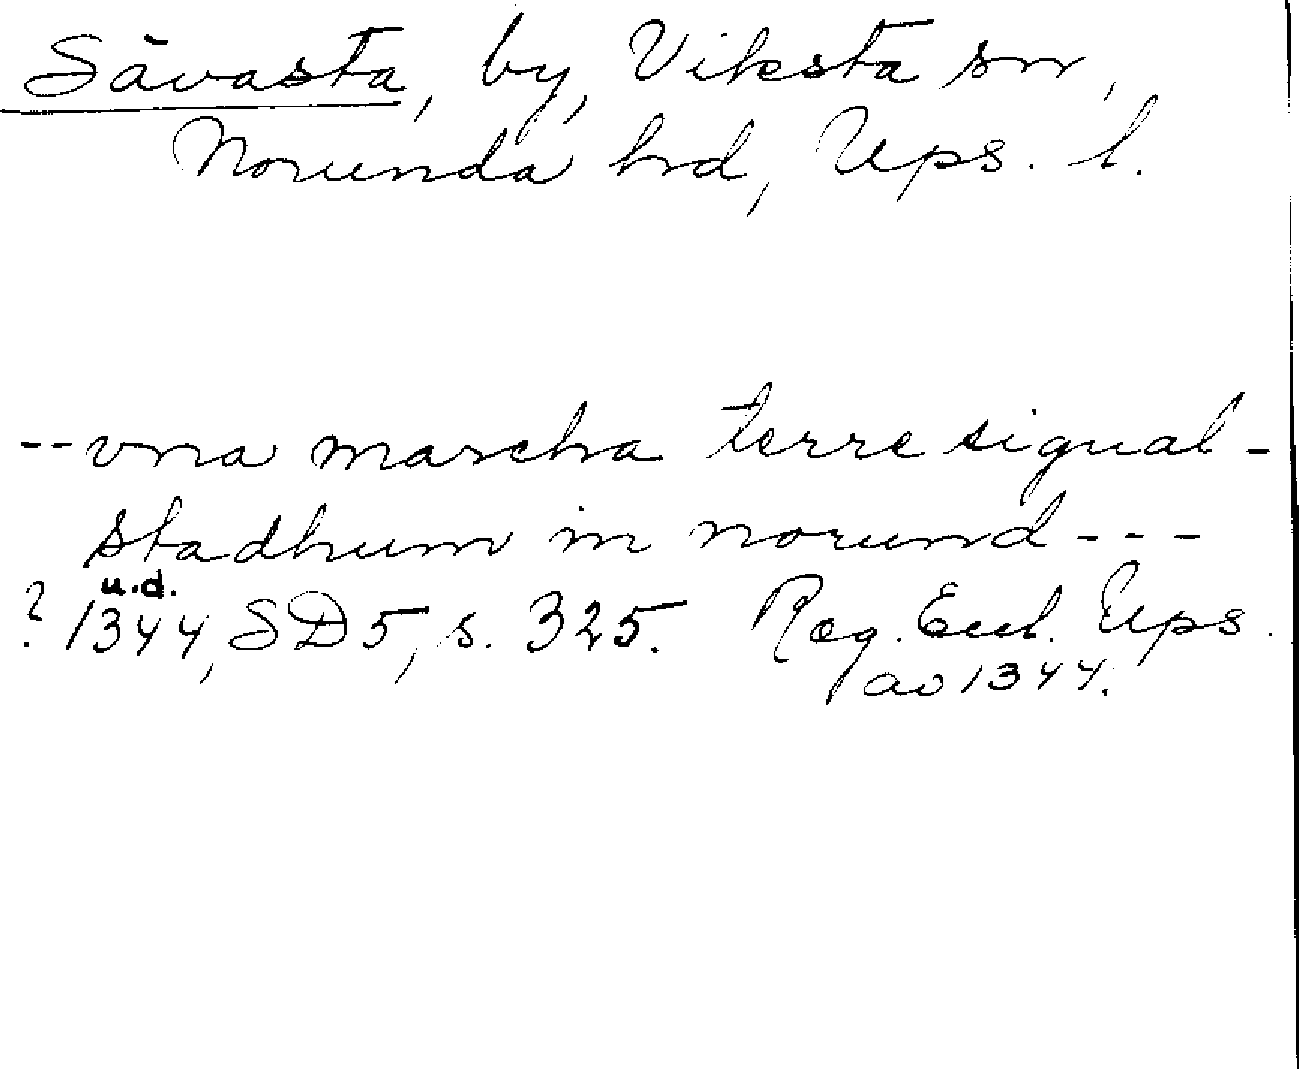 Sävasta, by, Viksta sn,
Norunda hd, Ups. l.
--vna marcha terre sigual-
stadhum in norund---
u.d.
? 1344, SD5, s. 325. Reg. Eccl. Ups.
ao 1344.